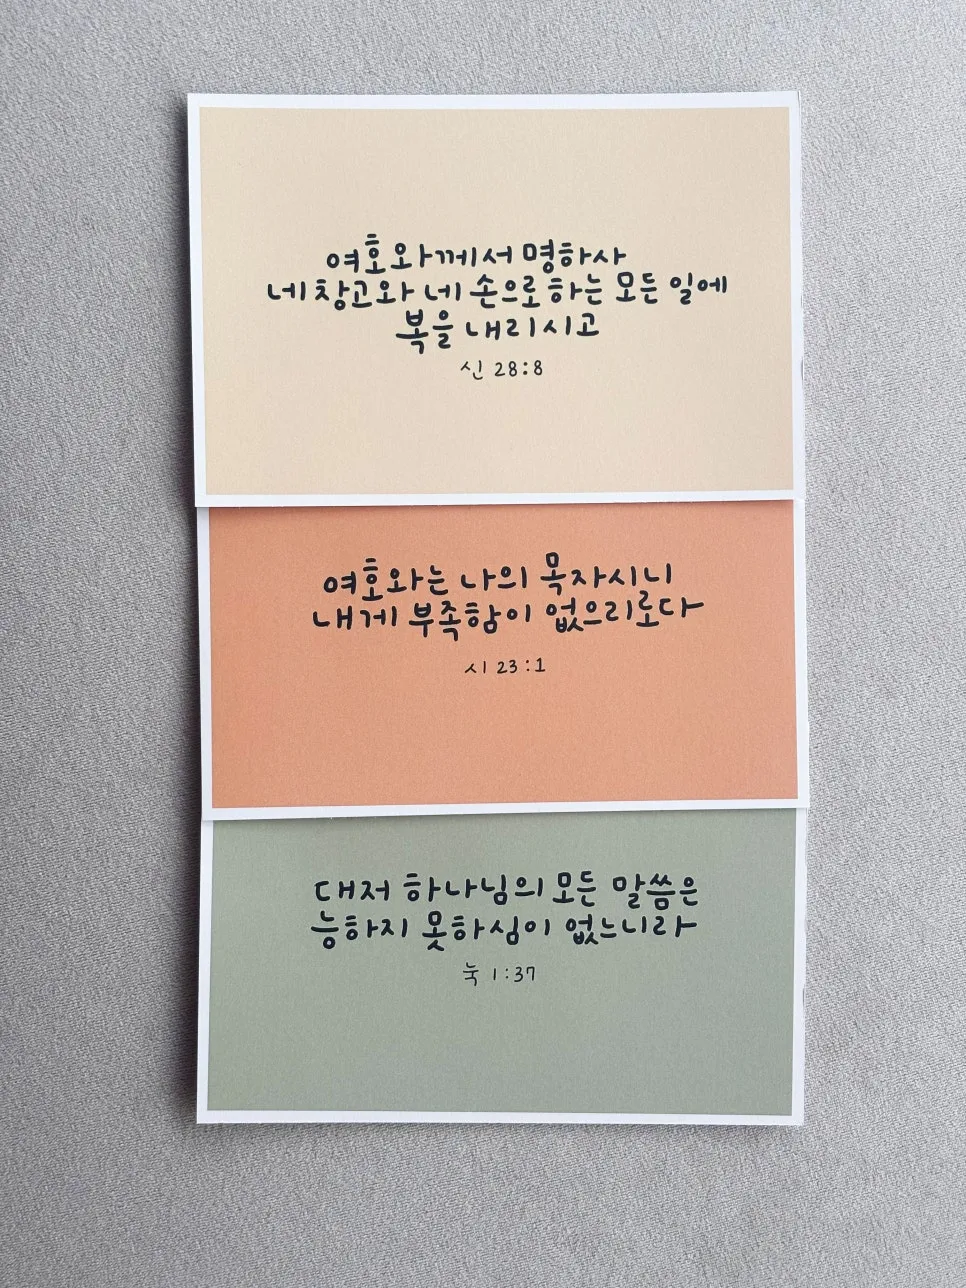 여호와께서 명하사
네 창고와 네 손으로 하는 모든 일에
복을 내리시고
신 28:8
여호와는 나의 목자시니
내게 부족함이 없으리로다
시 23:1
대저 하나님의 모든 말씀은
능하지 못하심이 없느니라
눅 1:37